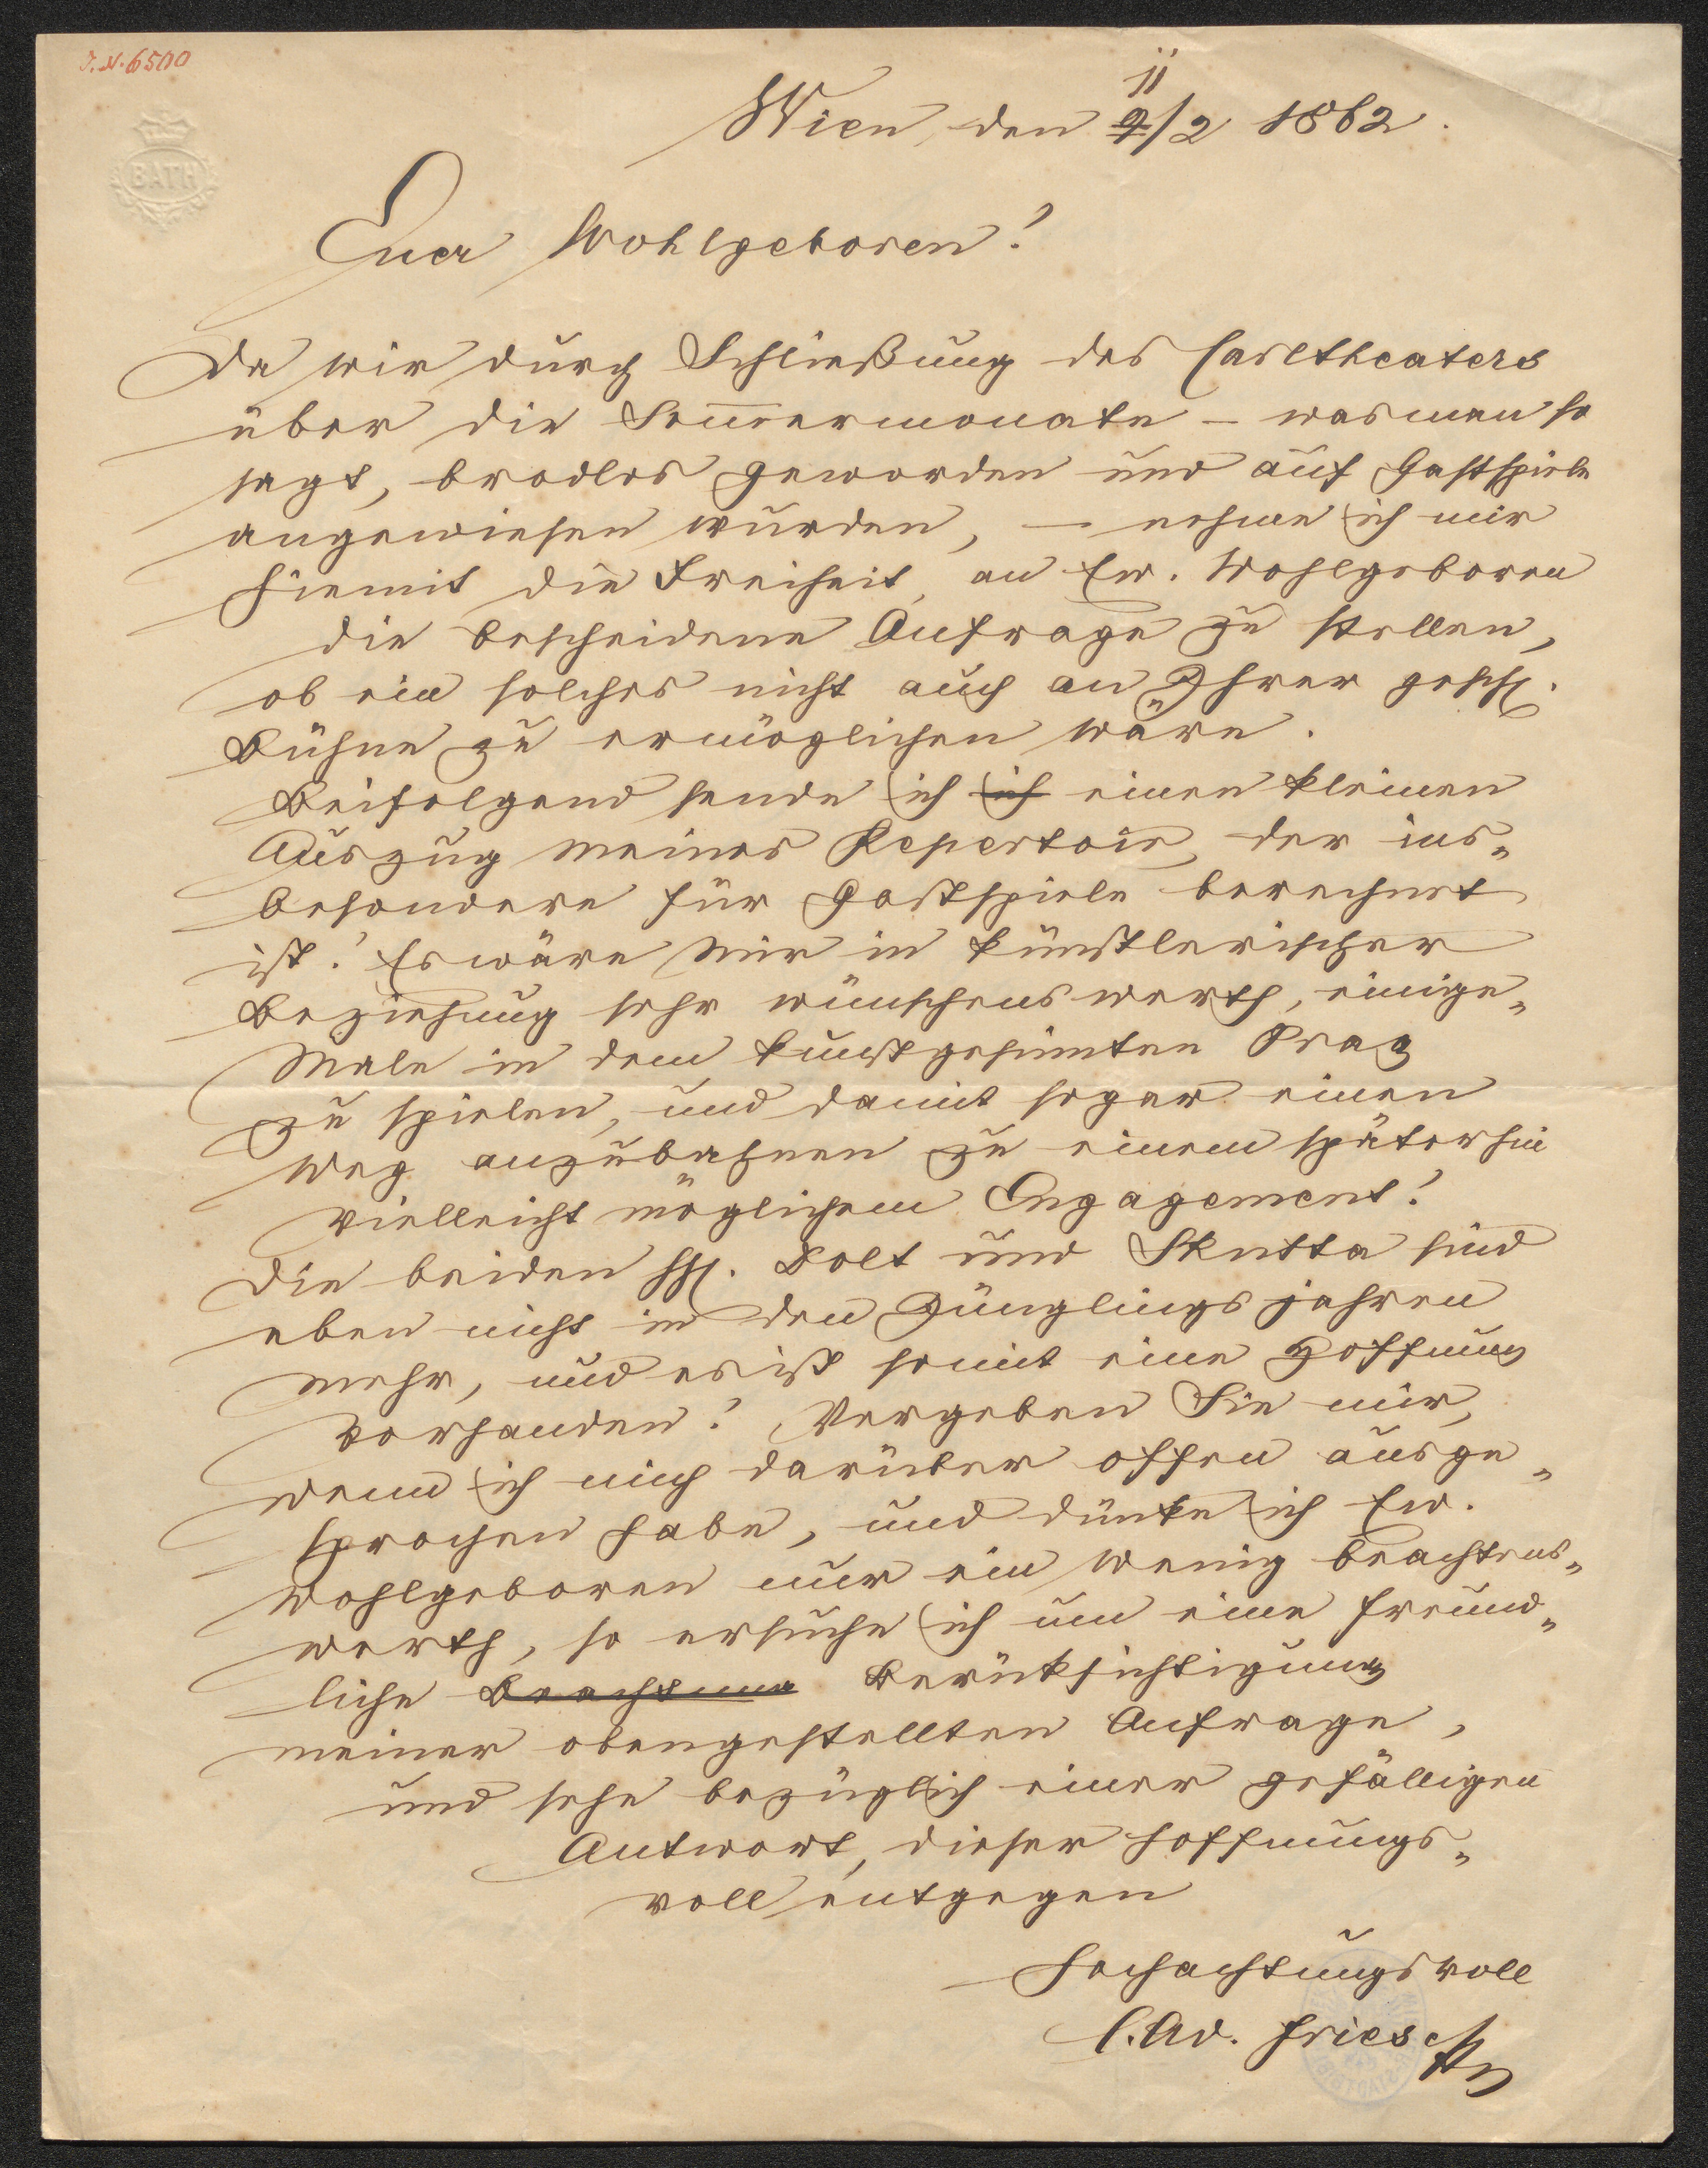 J. N. 6500
BATH
11
Wien, den 9/2 1862.
Euer Wohlgeboren!
Da wir durch Schließung des Carltheaters
über die Sommermonate – was man so
sagt, brodlos geworden und auf Gastspiele
angewiesen wurden, – nehme ich mir
hiemit die Freiheit, an Ew. Wohlgeboren
die bescheidene Anfrage zu stellen,
ob ein solches nicht auch an Ihrer gesch.
Bühne zu ermöglichen wäre.
Beifolgend sende ich ich einen kleinen
Auszug meines Repertoir, der ins„
besondere für Gastspiele berechnet
ist! Es wäre mir in künstlerischer
Beziehung sehr wünschenswerth, einige„
Male in dem kunstgesinnten Prag
zu spielen, und damit sogar einen
Weg anzubahnen zu einem späterhin
vielleicht möglichem Engagement!
Die beiden HH. Dolt und Skutta sind
eben nicht in den Jünglingsjahren
mehr, und es ist somit eine Hoffnung
vorhanden! Vergeben Sie mir,
wenn ich mich darüber offen ausge„
sprochen habe, und dünke ich Ew.
Wohlgeboren nur ein wenig beachtens„
werth, so ersuche ich um eine freund„
liche Beachtung Berücksichtigung
meiner obengestellten Anfrage,
und sehe bezüglich einer gefälligen
Antwort, dieser hoffnungs„
voll entgegen
Hochachtungsvoll
C. Ad. Friese